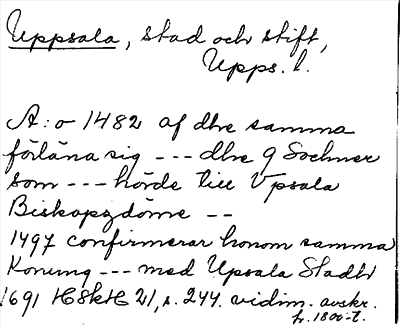 Uppsala, stad och stift,
Upps. l.
A:o 1482 af dhe samma
förläna sig --- dhe 9 Sochner
som --- hörde till Vpsala
Biskopzdöme --
1497 confirmerar honom samma
Konung --- med Upsala Stadh
1691 HSkH 21, s. 244. vidim. avskr.
fr. 1800-t.